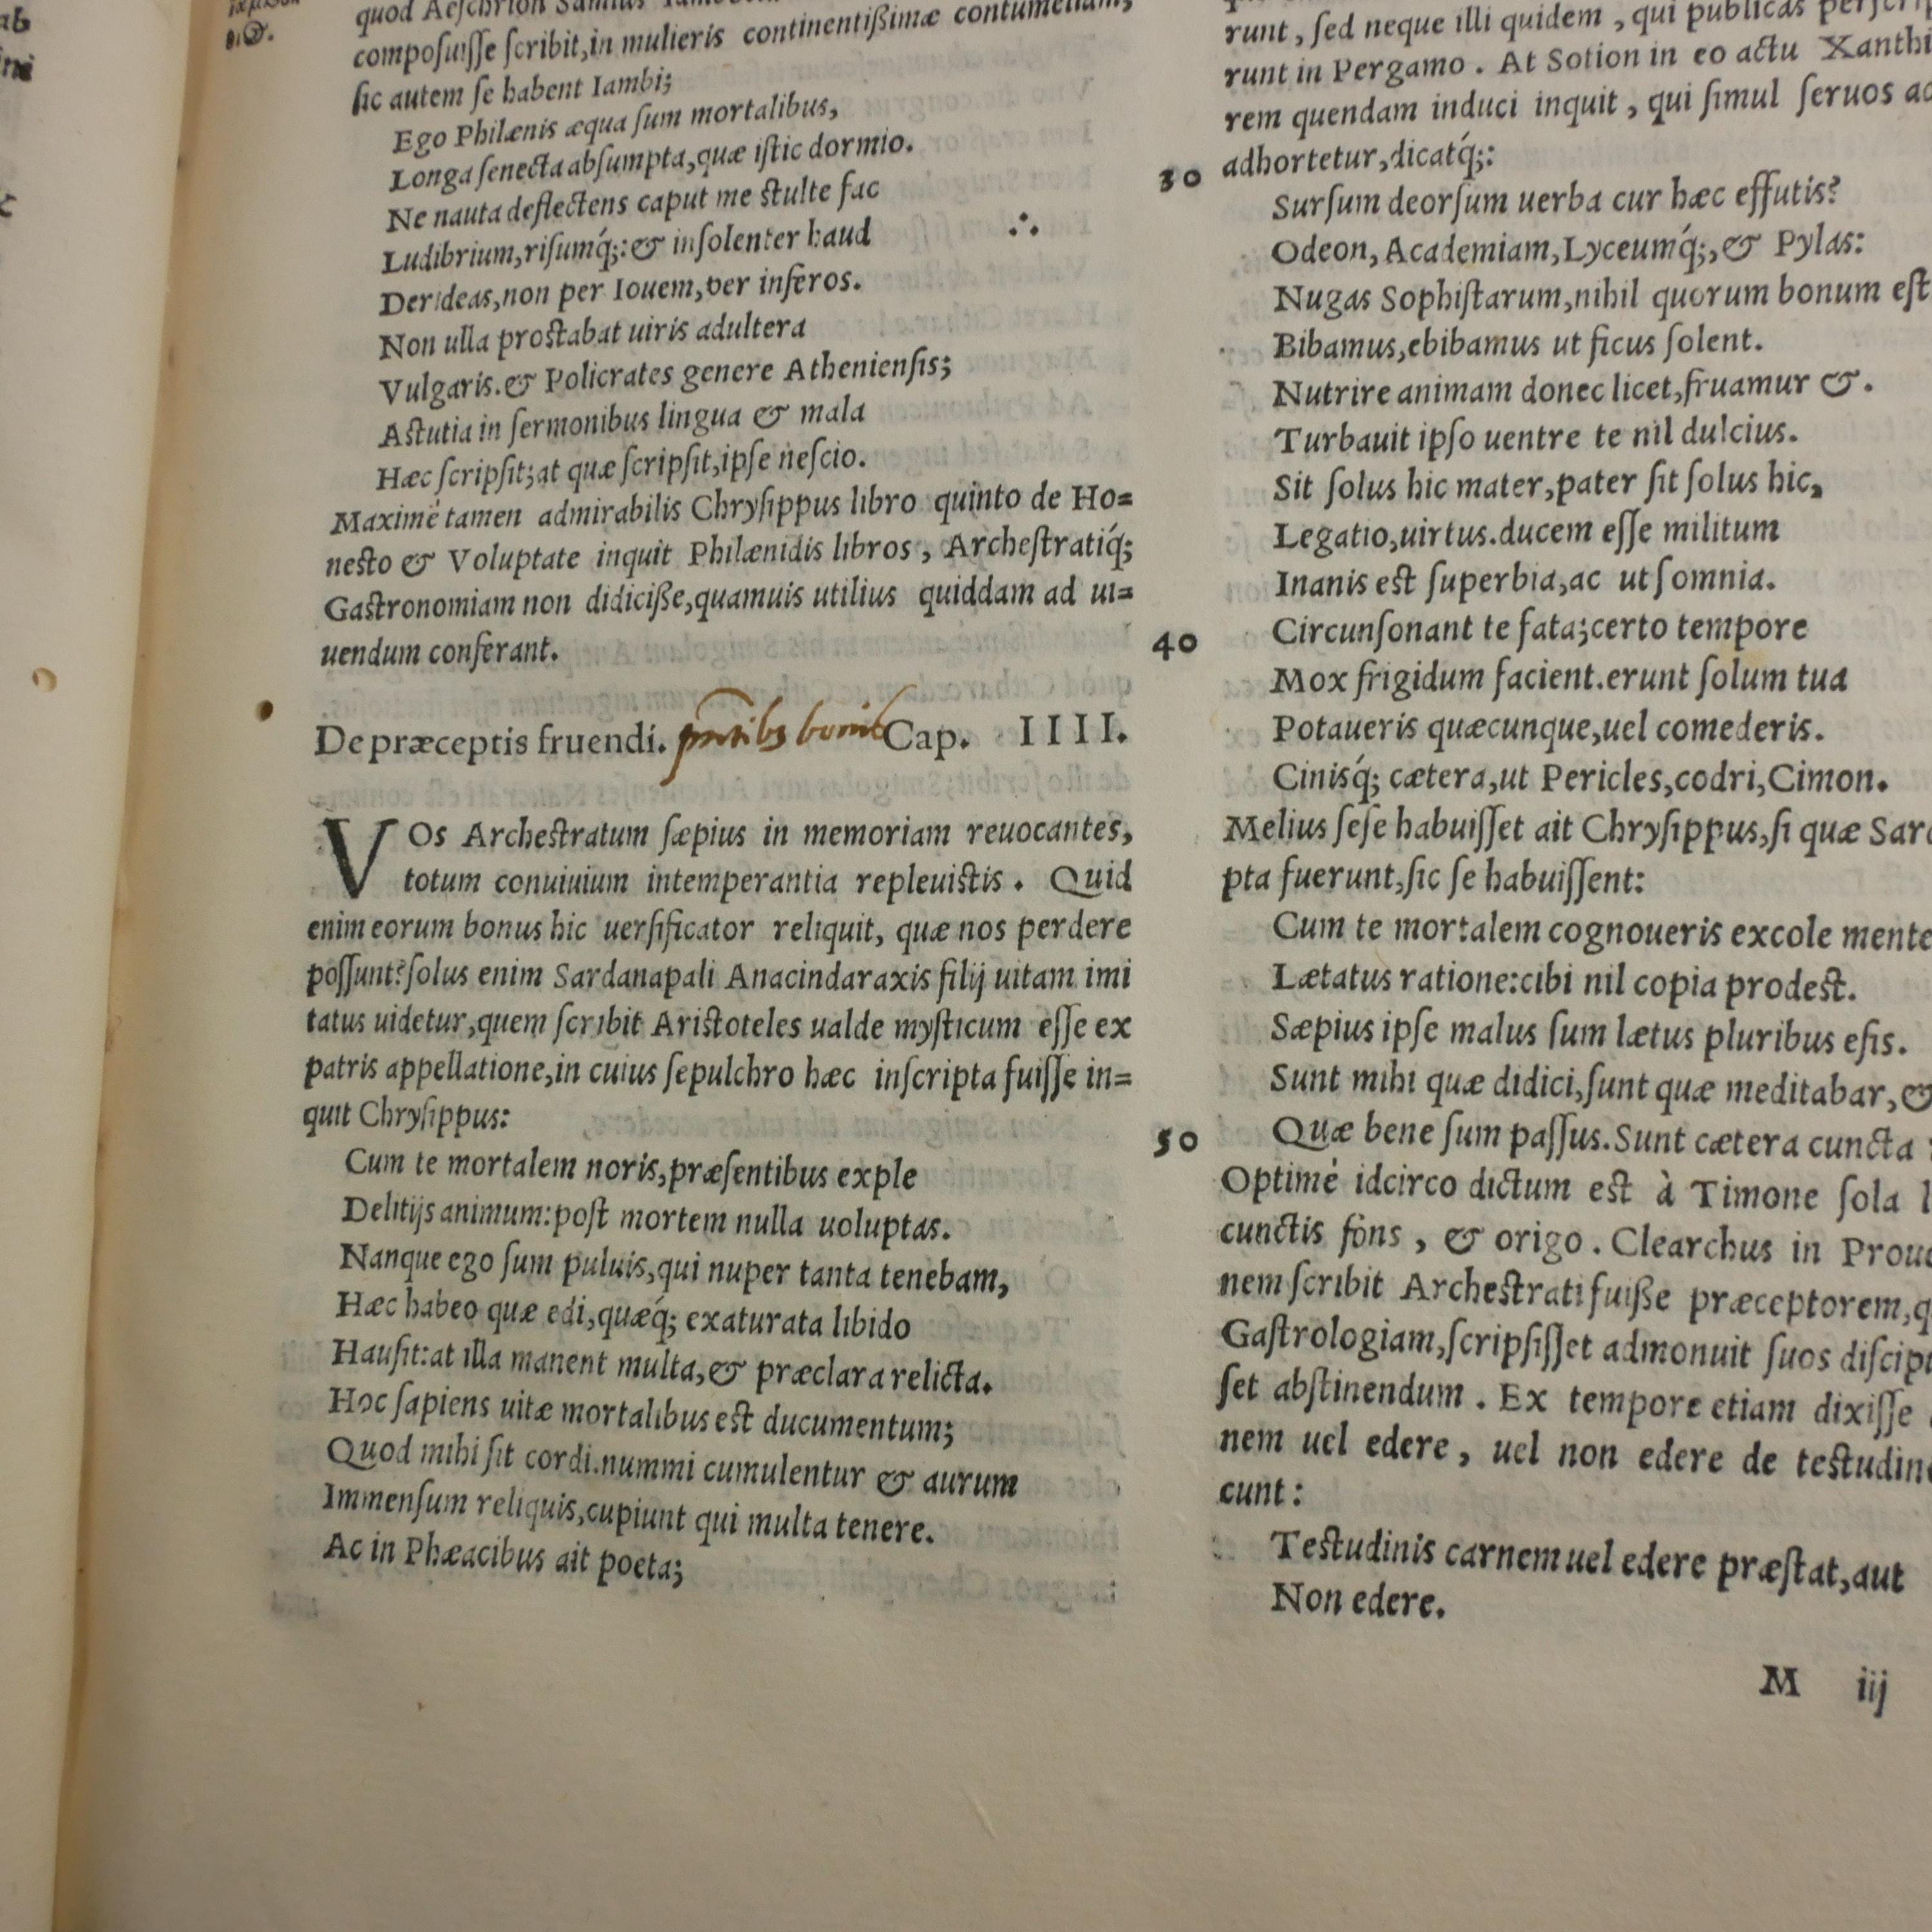 ab
quod Aeſchrion Samius
compoſuiſſe ſcribit,in mulieris continentiſsimæ contumeliam,
ſic autem ſe habent Iambi;
Ego Philænis æqua ſum mortalibus,
Longa ſenecta abſumpta,quæ iſtic dormio.
Ne nauta deflectens caput me ſtulte fac
Ludibrium,riſumq́;:& inſolenter haud
Derideas,non per Iouem,per inferos.
Non ulla proſtabat uiris adultera
Vulgaris.& Policrates genere Athenienſis;
Aſtutia in ſermonibus lingua & mala
Hæc ſcripſit;at quæ ſcripſit,ipſe neſcio.
Maximè tamen admirabilis Chryſippus libro quinto de Ho=
neſto & Voluptate inquit Philænidis libros, Archeſtratiq́;
Gaſtronomiam non didiciſſe,quamuis utilius quiddam ad ui=
uendum conferant.
De præceptis fruendi. Cap. IIII.
VOs Archeſtratum ſæpius in memoriam reuocantes,
totum conuiuium intemperantia repleuiſtis. Quid
enim eorum bonus hic uerſificator reliquit, quæ nos perdere
poſſunt?ſolus enim Sardanapali Anacindaraxis filij uitam imi
tatus uidetur,quem ſcribit Ariſtoteles ualde myſticum eſſe ex
patris appellatione,in cuius ſepulchro hæc inſcripta fuiſſe in=
quit Chryſippus:
Cum te mortalem noris,præſentibus exple
Delitijs animum:poſt mortem nulla uoluptas.
Nanque ego ſum puluis,qui nuper tanta tenebam,
Hæc habeo quæ edi,quæq́; exaturata libido
Hauſit:at illa manent multa,& præclara relicta.
Hoc ſapiens uitæ mortalibus eſt ducumentum;
Quod mihi ſit cordi.nummi cumulentur & aurum
Immenſum reliquis,cupiunt qui multa tenere.
Ac in Phæacibus ait poeta;
runt, ſed neque illi quidem, qui publicas
runt in Pergamo. At Sotion in eo actu Xanthi
rem quendam induci inquit, qui ſimul ſeruos ad
30 adhortetur,dicatq́;:
Surſum deorſum uerba cur hæc effutis?
Odeon, Academiam,Lyceumq́;,& Pylas:
Nugas Sophiſtarum,nihil quorum bonum eſt
Bibamus,ebibamus ut ficus ſolent.
Nutrire animam donec licet,fruamur &.
Turbauit ipſo uentre te nil dulcius.
Sit ſolus hic mater,pater ſit ſolus hic,
Legatio,uirtus.ducem eſſe militum
Inanis eſt ſuperbia,ac ut ſomnia.
40 Circunſonant te fata;certo tempore
Mox frigidum facient.erunt ſolum tua
Potaueris quæcunque,uel comederis.
Cinisq́; cætera,ut Pericles,codri,Cimon.
Melius ſeſe habuiſſet ait Chryſippus,ſi quæ Sar
pta fuerunt,ſic ſe habuiſſent:
Cum te mortalem cognoueris excole mente
Lætatus ratione:cibi nil copia prodeſt.
Sæpius ipſe malus ſum lætus pluribus eſis.
Sunt mihi quæ didici,ſunt quæ meditabar,&
50 Quæ bene ſum paſſus.Sunt cætera cuncta
Optimè idcirco dictum eſt à Timone ſola l
cunctis fons, & origo. Clearchus in Proue
nem ſcribit Archeſtrati fuiſſe præceptorem,q
Gaſtrologiam,ſcripſiſſet admonuit ſuos diſcip
ſet abſtinendum. Ex tempore etiam dixiſſe
nem uel edere, uel non edere de teſtudin
cunt:
Teſtudinis carnem uel edere præſtat,aut
Non edere.
M iij